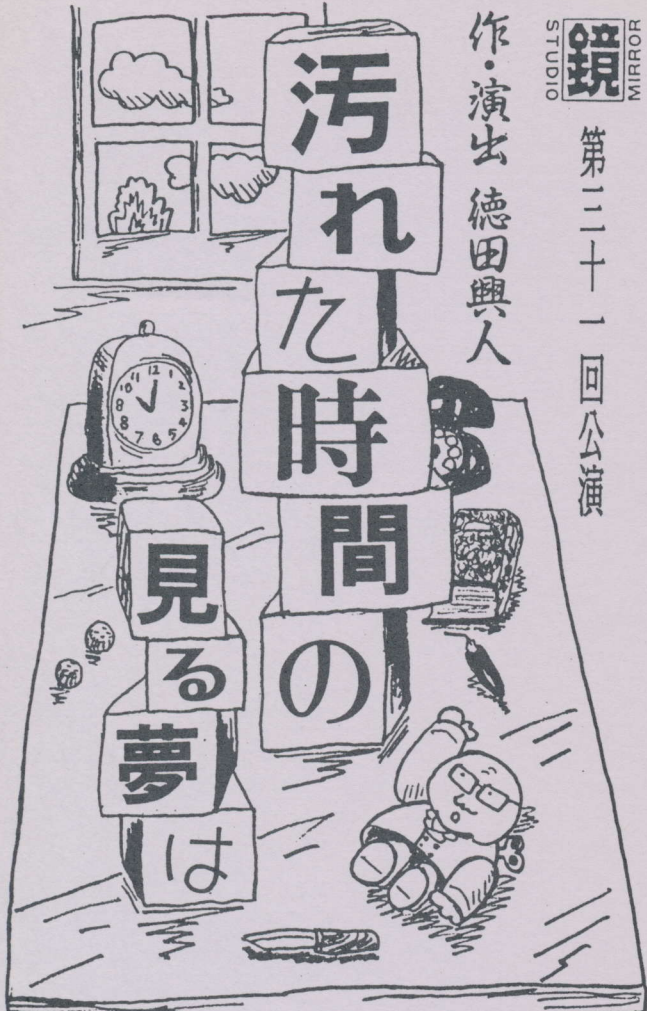 STUDIO
鏡
MIRROR
第三十一回公演
作・演出 徳田興人
汚れた時間の
見る夢は
12
1
2
3
4
5
6
7
8
9
10
11